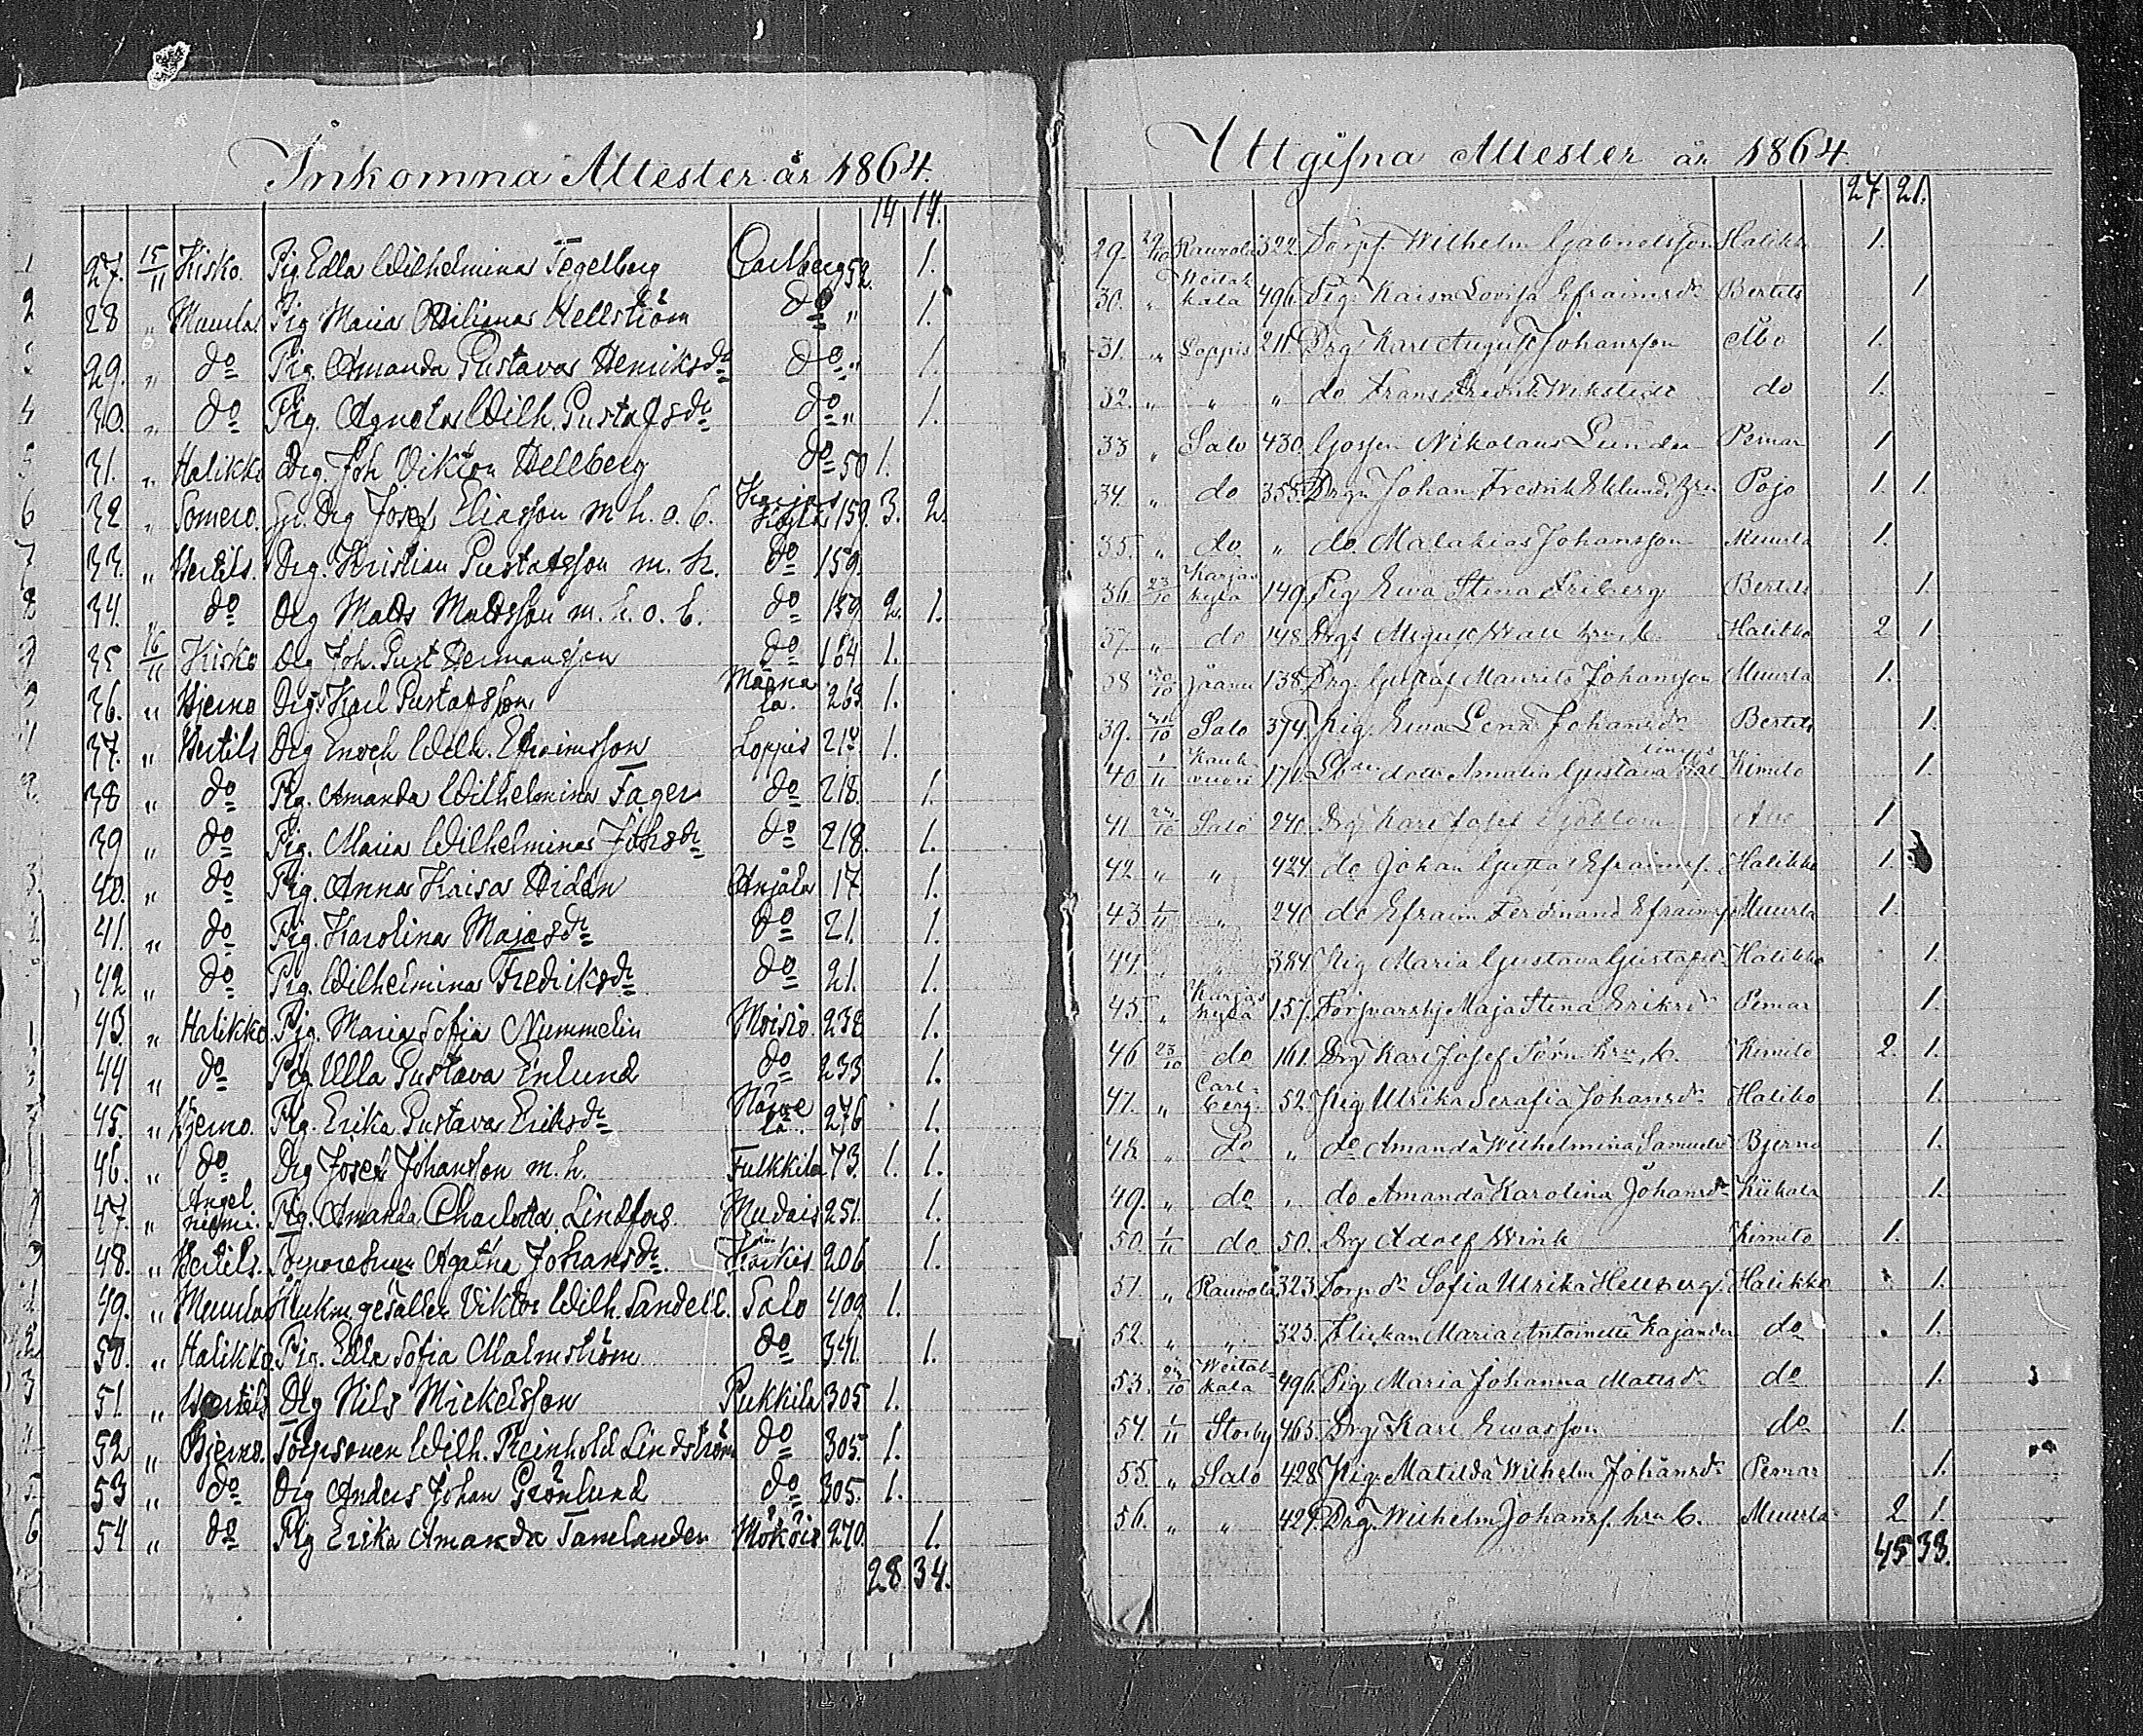 Inkomna Attester år 1864.
14 14.
27. 15/11 Kisko. Pig Edla Wilhelmina Tegelberg Carlberg 52. 1.
28 " Muurla. Pig Maria Wellström do " 1.
29. " do Pig. Amanda Gustava Henriksdr do " 1.
30. " do Pig. Agneta Wilh. Gustafsdr do " 1.
31. " Halikko Drg. Joh Viktor Hellberg do 50 1.
32 " Somero. Drg Josef Eliasson m. h. o. b. Karjas 159. 3. 2.
33. " Bertils. Drg. Kristian Gustafsson m. h. do 159.
34. " do Drg Matts Mattsson m. h. o. b. do 159 2. 1.
35 16/11 Kisko Drg Joh. Gust Hermansson do 164 1.
36. " Bjerno Drg Karl Gustafsson 263. 1.
37. " Bertils Drg Enoch Wilh. Efraimsson Loppis 218. 1.
38 " do Pig. Amanda Wilhelmina Fager do 218. 1.
39 " do Pig. Maria Wilhelmina Johsdr do 218. 1.
40. " do Pig. Anna Kaisa Hidén Anjala 17. 1.
41. " do Pig. Karolina Majasdr do 21. 1.
42 " do Pig. Wilhelmina Fredriksdr do 21. 1.
43. " Halikko. Pig. Maria Sofia Nummelin Moisio. 238 1.
44 " do Pig. Ulla Gustava Enlund do 233 1.
45. " Bjerno. Pig. Erika Gustava Eriksdr 276 1.
46. " do Drg Josef Johansson m. h. Fulkkila 73. 1. 1.
47. " Angelniemi. Pig. Amanda Charlotta Lindfors. Mudais 251. 1.
48. " Bertils. Agatha Johansdr. Kärkis 206 1.
49. " Muurla gesällen Viktor Wilh. Sandell. Salo 409. 1.
50. " Halikko. Pig. Edla Sofia Malmström do 341. 1.
51. " Bertils Drg Nils Mickelsson Pukkila 305 1.
52 " Bjerno. Torpsonen Wilh. Reinhold Lindström do 305. 1.
53 " do Drg Anders Johan Grönlund do 305. 1.
54 " do Pig Erika Amanda Tamelander Mököis 270. 1.
28. 34.
Uttgifna Attester år 1864.
27. 21.
29. Rauvola 322. Torpf. Wilhelm Gabrielsson Halikko 1.
30. " Weitakala 496. Pig. Kaisa Lovisa Efraimsdr Bertils 1
31. " Loppis 211. Drg Karl August Johansson Åbo 1.
32. " " " do Frans Fredrik Wikstedt do 1.
33 " Salo 430. Gossen Nikolaus Lunden Pemar 1
34. " do 355. Drgn Johan Fredrik Eklund, Pojo 1. 1.
35. " do " do. Malakias Johansson Muurla 1.
36. 23/10 Karjaskylä 149. Pig Ewa Stina Friberg Bertils 1.
37. " do 148. Drg August Halikko 2. 1
38 138. Drg. Gustaf Maurits Johansson Muurla 1.
39. Salo 374. Pig. Ewa Lena Johansdr Bertils 1.
40. 1/11 170. Amalia Gustava Kimito 1.
41. Salo 240. Drg Karl Josef 1
42. " " 424. do Johan Gustaf Efraimss. Halikko 1.
43. 1/11 " 240 do Efraim Ferdinand Efraimss Muurla 1.
44. " " 384 Pig Maria Gustava Gustafsdr Halikko 1.
45. " Karjaskylä 157. Maja Stina Eriksdr Pemar 1.
46 23/10 do 161. Drg Karl Josef Kimito 2. 1.
47. " Carlberg. 52. Pig Ulrika Serafia Johansdr Haliko 1.
48. " do " do Amanda Wilhelmina Bjerno 1.
49. " do " do Amanda Karolina Johansdr Kiikala 1.
50. 1/11 do 50. Drg Adolf Wink Kimito 1.
51. " Rauvola 323. Torp. dr Sofia Ulrika Hellberg. Halikko 1.
52. " " 323. Flickan Maria Antoinette Kajander do 1.
53. Weitakala 496. Pig Maria Johanna Mattsdr do 1.
54. 1/11 Storby 465. Drg Karl Ewasson do 1.
55. " Salo 428. Pig. Matilda Wilhelm Johansdr Pemar 1.
56. " " 429. Drg. Wilhelm Johanss. b. Muurla 2 1.
45 38.